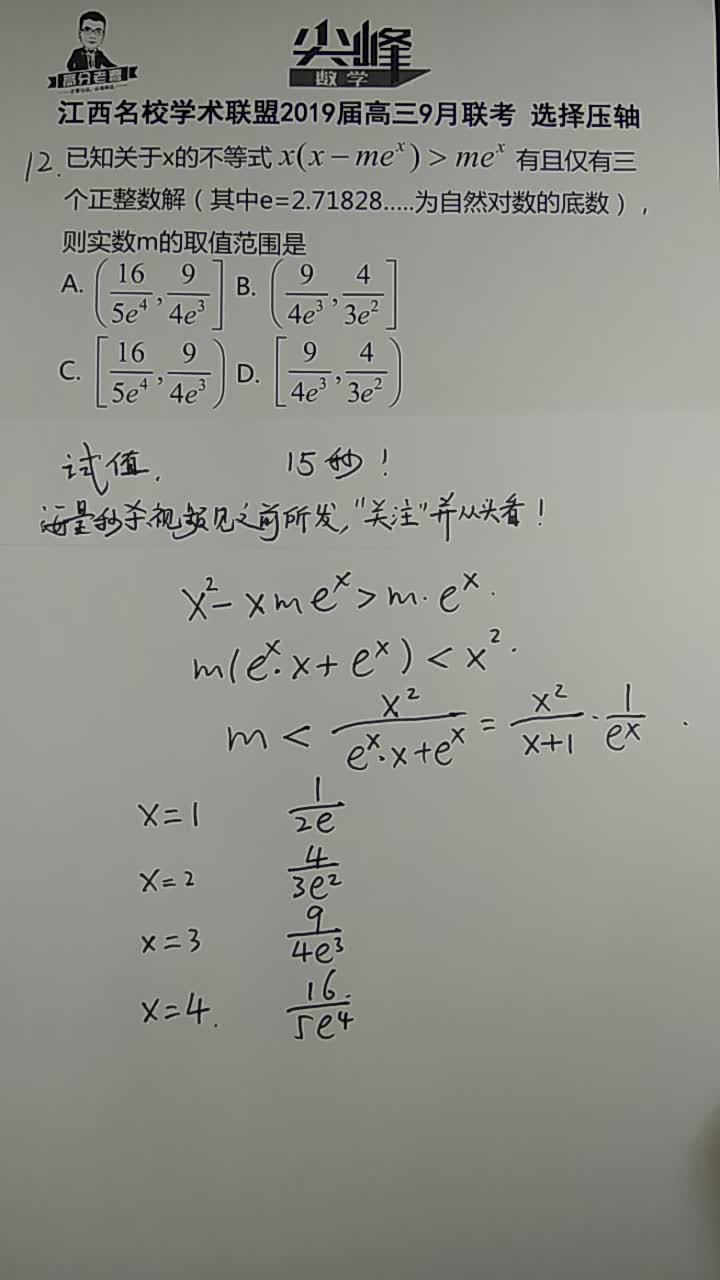 高分老高
尖峰
数学
江西名校学术联盟2019届高三9月联考 选择压轴
12. 已知关于x的不等式 x(x-me^x)>me^x 有且仅有三
个正整数解（其中e=2.71828.....为自然对数的底数），
则实数m的取值范围是
A. (16/5e^4, 9/4e^3] B. (9/4e^3, 4/3e^2]
C. [16/5e^4, 9/4e^3) D. [9/4e^3, 4/3e^2)
试值. 15秒!
海量秒杀视频见之前所发,"关注"并从头看!
x^2-xme^x>m·e^x.
m(e^x·x+e^x)<x^2.
m<x^2/(e^x·x+e^x)=x^2/(x+1)·1/e^x.
x=1 1/2e
x=2 4/3e^2
x=3 9/4e^3
x=4. 16/5e^4